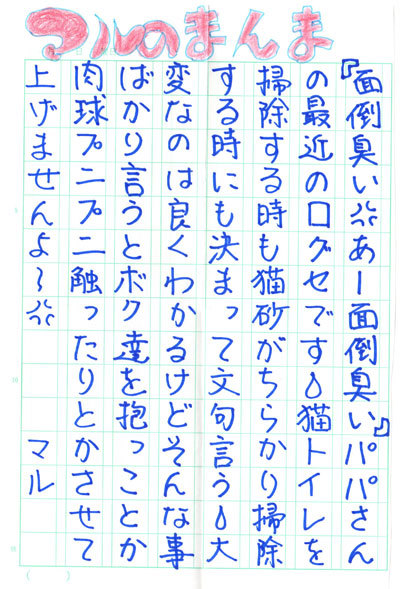 マルのまんま
『面倒臭い💢あー面倒臭い』パパさん
の最近の口グセです💧猫トイレを
掃除する時も猫砂がちらかり掃除
する時にも決まって文句言う💧大
変なのは良くわかるけどそんな事
ばかり言うとボク達を抱っことか
肉球プニプニ触ったりとかさせて
上げませんよ～💢 マル